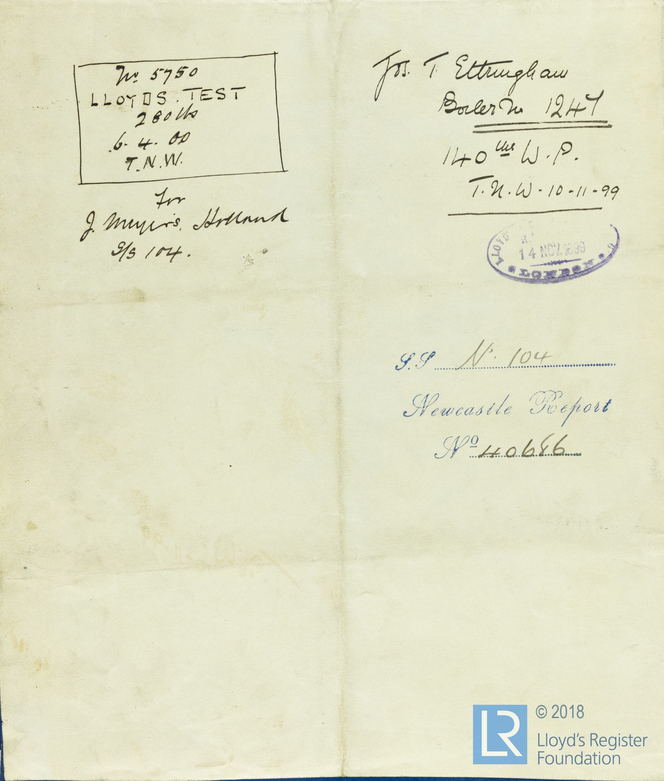 No 5750
LLOYDS. TEST
280 lbs
6. 4. 00
T.N.W.
For
J. Meyers, Holland
S/S 104.
Jos. T. Eltringham
Boiler No 1247
140 lbs W.P.
T.N.W. 10-11-99
LLOYD'S
14 NOV. 1899
LONDON
S.S No. 104
Newcastle Report
No 40686
LR
© 2018
Lloyd's Register
Foundation